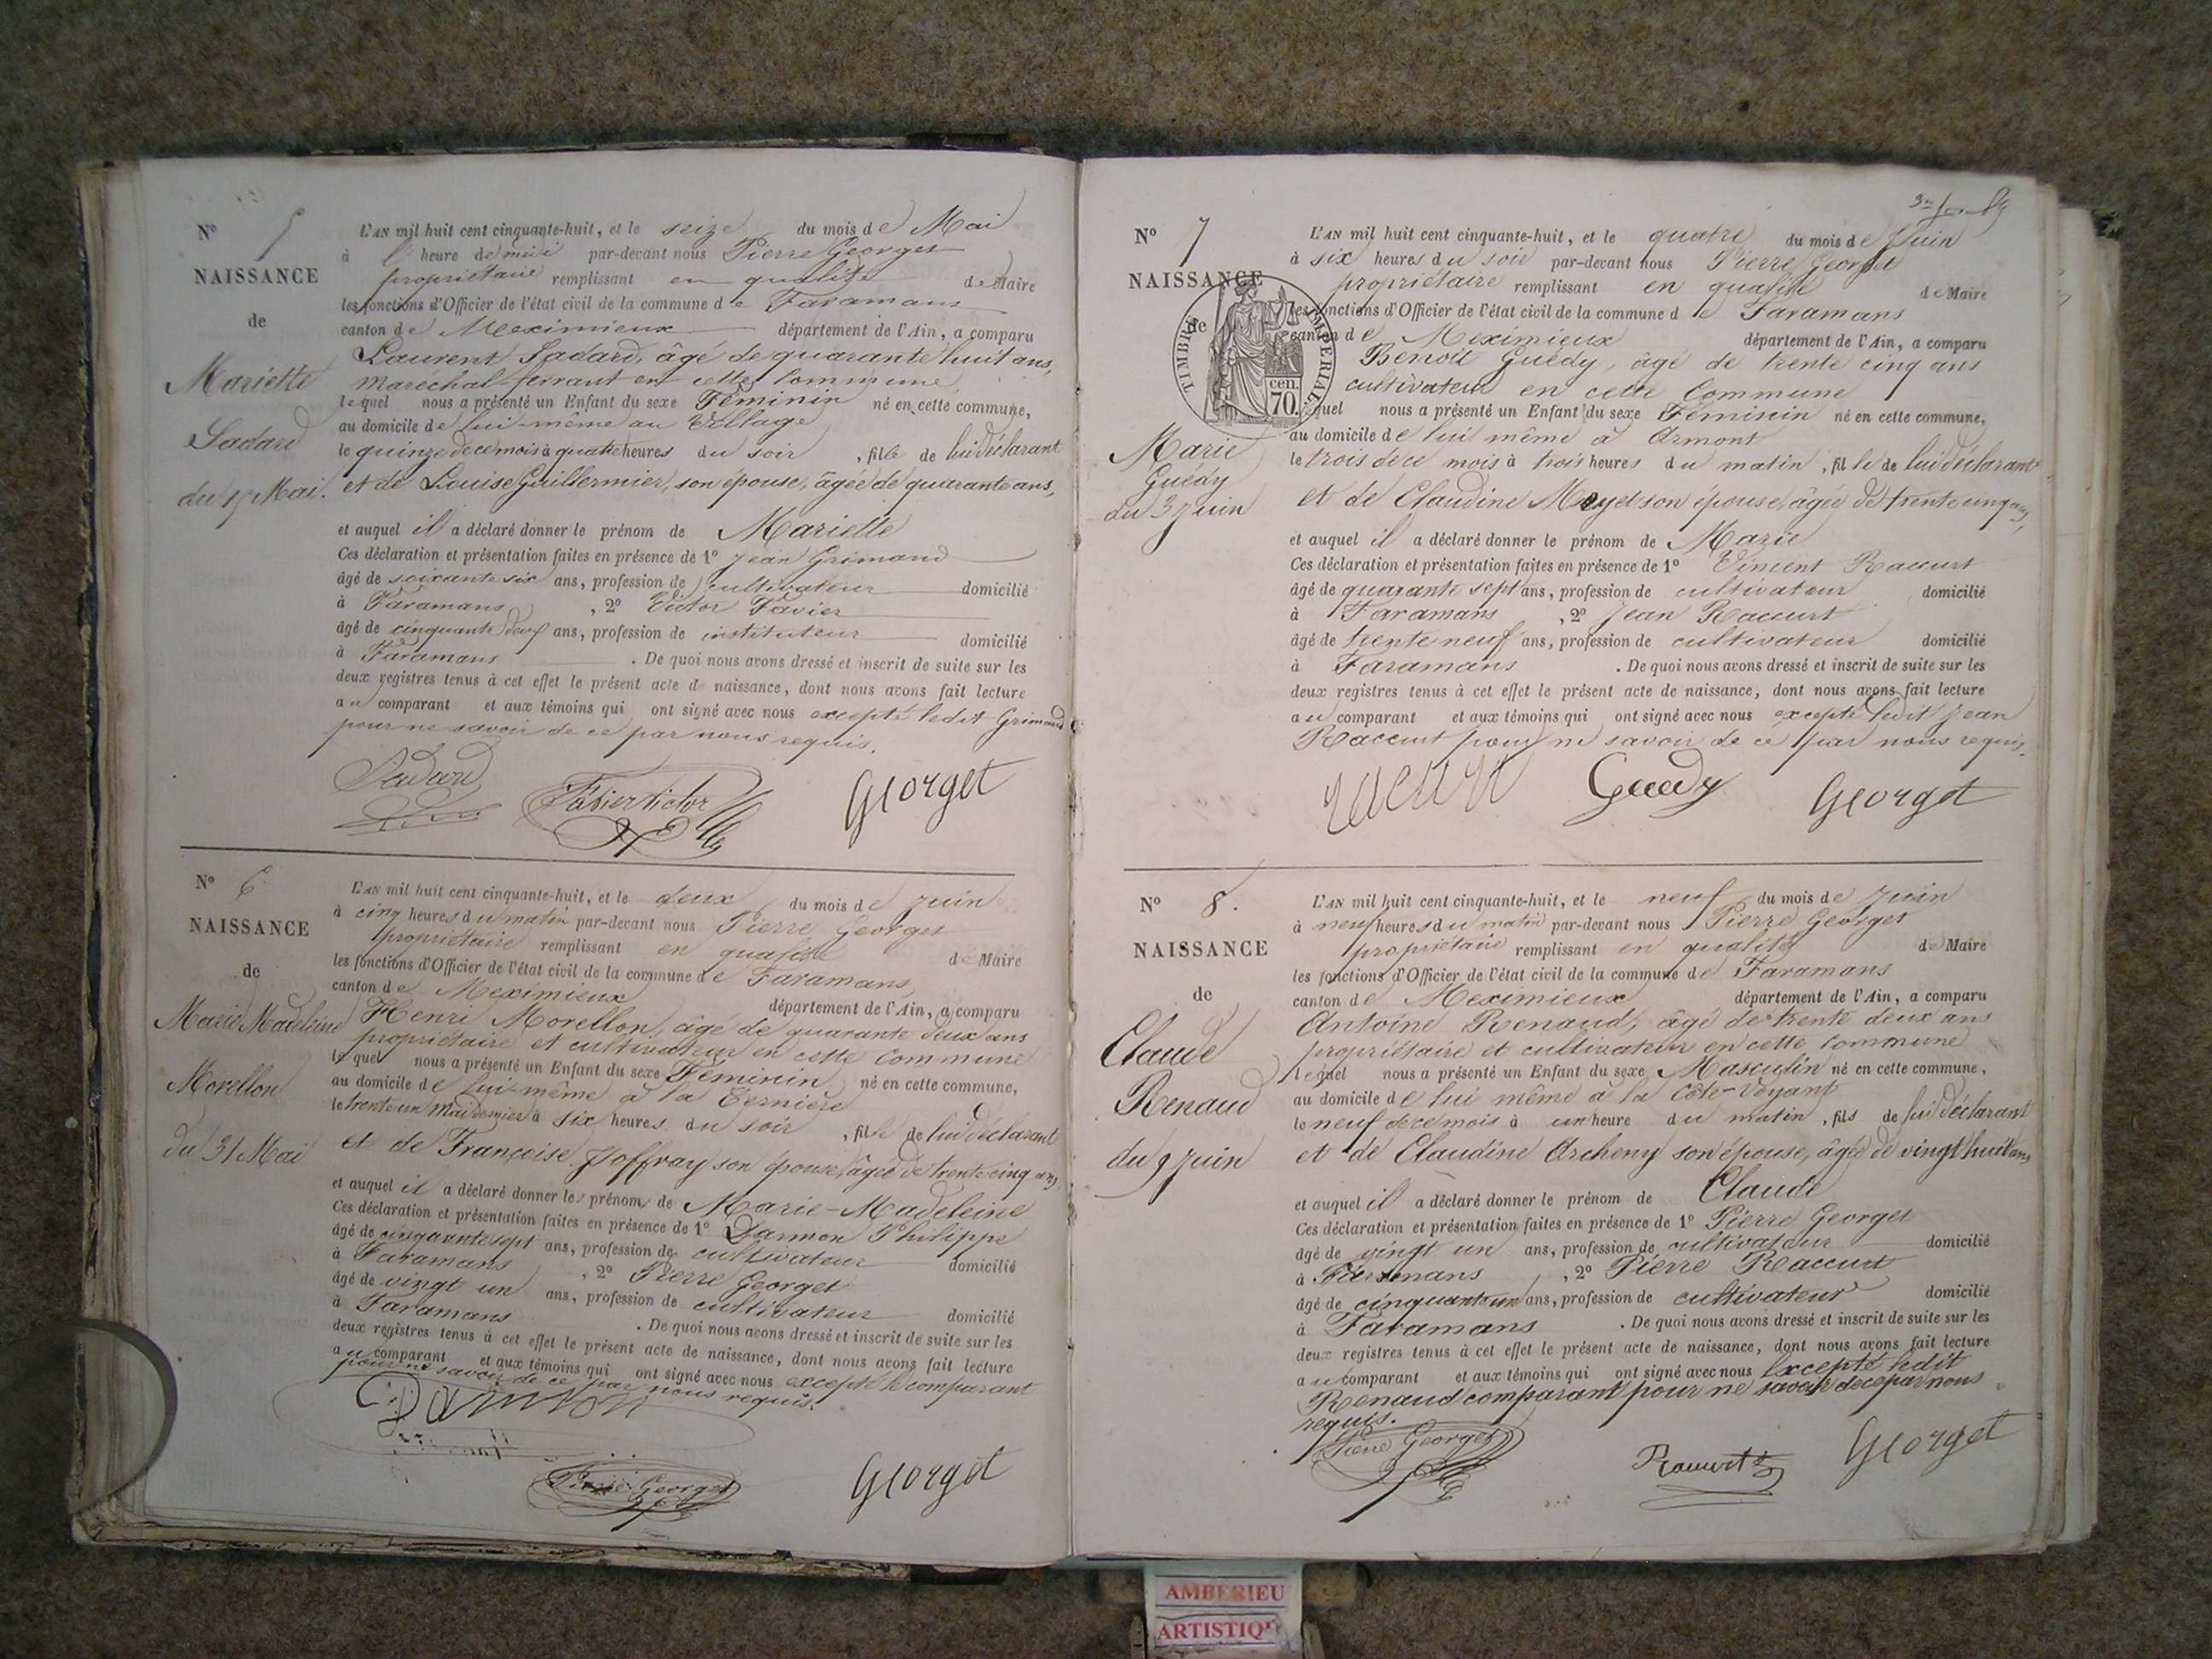 N° 5
NAISSANCE
de
Mariette
Sadard
du 15 Mai.
L'AN mil huit cent cinquante-huit, et le seize du mois de Mai
à l'heure de midi par-devant nous Pierre Georget
propriétaire remplissant en qualité de Maire
les fonctions d'Officier de l'état civil de la commune de Faramans
canton de Meximieux département de l'Ain, a comparu
Laurent Sadard, âgé de quarante huit ans,
maréchal-ferrant en cette Commune,
lequel nous a présenté un Enfant du sexe Féminin né en cette commune,
au domicile de lui-même au Village
le quinze de ce mois à quatre heures du soir, fille de lui déclarant
et de Louise Guillermier, son épouse, âgée de quarante ans,
et auquel il a déclaré donner le prénom de Mariette
Ces déclaration et présentation faites en présence de 1° Jean Grimand
âgé de soixante six ans, profession de cultivateur domicilié
à Faramans, 2° Victor Favier
âgé de cinquante deux ans, profession de instituteur domicilié
à Faramans. De quoi nous avons dressé et inscrit de suite sur les
deux registres tenus à cet effet le présent acte de naissance, dont nous avons fait lecture
au comparant et aux témoins qui ont signé avec nous excepté ledit Grimand
pour ne savoir de ce par nous requis.
Sadard Favier Victor Georget
N° 6
NAISSANCE
de
Marie Madeleine
Morellon
du 31 Mai
L'AN mil huit cent cinquante-huit, et le deux du mois de Juin
à cinq heures du matin par-devant nous Pierre Georget
propriétaire remplissant en qualité de Maire
les fonctions d'Officier de l'état civil de la commune de Faramans,
canton de Meximieux département de l'Ain, a comparu
Henri Morellon, âgé de quarante deux ans
propriétaire et cultivateur en cette Commune
lequel nous a présenté un Enfant du sexe Féminin né en cette commune,
au domicile de lui-même à la
le trente un Mai dernier à six heures du soir, fille de lui déclarant
et de Françoise Joffray son épouse, âgée de trente cinq ans,
et auquel il a déclaré donner les prénoms de Marie-Madeleine
Ces déclaration et présentation faites en présence de 1° Darmon Philippe
âgé de cinquante sept ans, profession de cultivateur domicilié
à Faramans, 2° Pierre Georget
âgé de vingt un ans, profession de cultivateur domicilié
à Faramans. De quoi nous avons dressé et inscrit de suite sur les
deux registres tenus à cet effet le présent acte de naissance, dont nous avons fait lecture
au comparant et aux témoins qui ont signé avec nous excepté le comparant
pour ne savoir de ce par nous requis.
Darmon
Pierre Georget Georget
N° 7
NAISSANCE
de
TIMBRE IMPERIAL
cen.
70.
Marie
Guédy
du 3 Juin
L'AN mil huit cent cinquante-huit, et le quatre du mois de Juin
à six heures du soir par-devant nous Pierre Georget
propriétaire remplissant en qualité de Maire
les fonctions d'Officier de l'état civil de la commune de Faramans
canton de Meximieux département de l'Ain, a comparu
Benoît Guédy, âgé de trente cinq ans
cultivateur en cette Commune
lequel nous a présenté un Enfant du sexe Féminin né en cette commune,
au domicile de lui même à Ormont
le trois de ce mois à trois heures du matin, fille de lui déclarant
et de Claudine son épouse, âgée de trente cinq ans,
et auquel il a déclaré donner le prénom de Marie
Ces déclaration et présentation faites en présence de 1° Vincent Raccurt
âgé de quarante sept ans, profession de cultivateur domicilié
à Faramans, 2° Jean Raccurt
âgé de trente neuf ans, profession de cultivateur domicilié
à Faramans. De quoi nous avons dressé et inscrit de suite sur les
deux registres tenus à cet effet le présent acte de naissance, dont nous avons fait lecture
au comparant et aux témoins qui ont signé avec nous excepté ledit Jean
Raccurt pour ne savoir de ce par nous requis.
Guedy Georget
N° 8.
NAISSANCE
de
Claude
Renaud
du 9 Juin
L'AN mil huit cent cinquante-huit, et le neuf du mois de Juin
à neuf heures du matin par-devant nous Pierre Georget
propriétaire remplissant en qualité de Maire
les fonctions d'Officier de l'état civil de la commune de Faramans
canton de Meximieux département de l'Ain, a comparu
Antoine Renaud, âgé de trente deux ans
propriétaire et cultivateur en cette commune
lequel nous a présenté un Enfant du sexe Masculin né en cette commune,
au domicile de lui même à la Côte-Voyant
le neuf de ce mois à un heure du matin, fils de lui déclarant
et de Claudine Archeny son épouse, âgée de vingt huit ans
et auquel il a déclaré donner le prénom de Claude
Ces déclaration et présentation faites en présence de 1° Pierre Georget
âgé de vingt un ans, profession de cultivateur domicilié
à Faramans, 2° Pierre Raccurt
âgé de cinquante un ans, profession de cultivateur domicilié
à Faramans. De quoi nous avons dressé et inscrit de suite sur les
deux registres tenus à cet effet le présent acte de naissance, dont nous avons fait lecture
au comparant et aux témoins qui ont signé avec nous Excepté ledit
Renaud comparant pour ne savoir de ce par nous
requis.
Pierre Georget Georget
AMBERIEU
ARTISTIQU